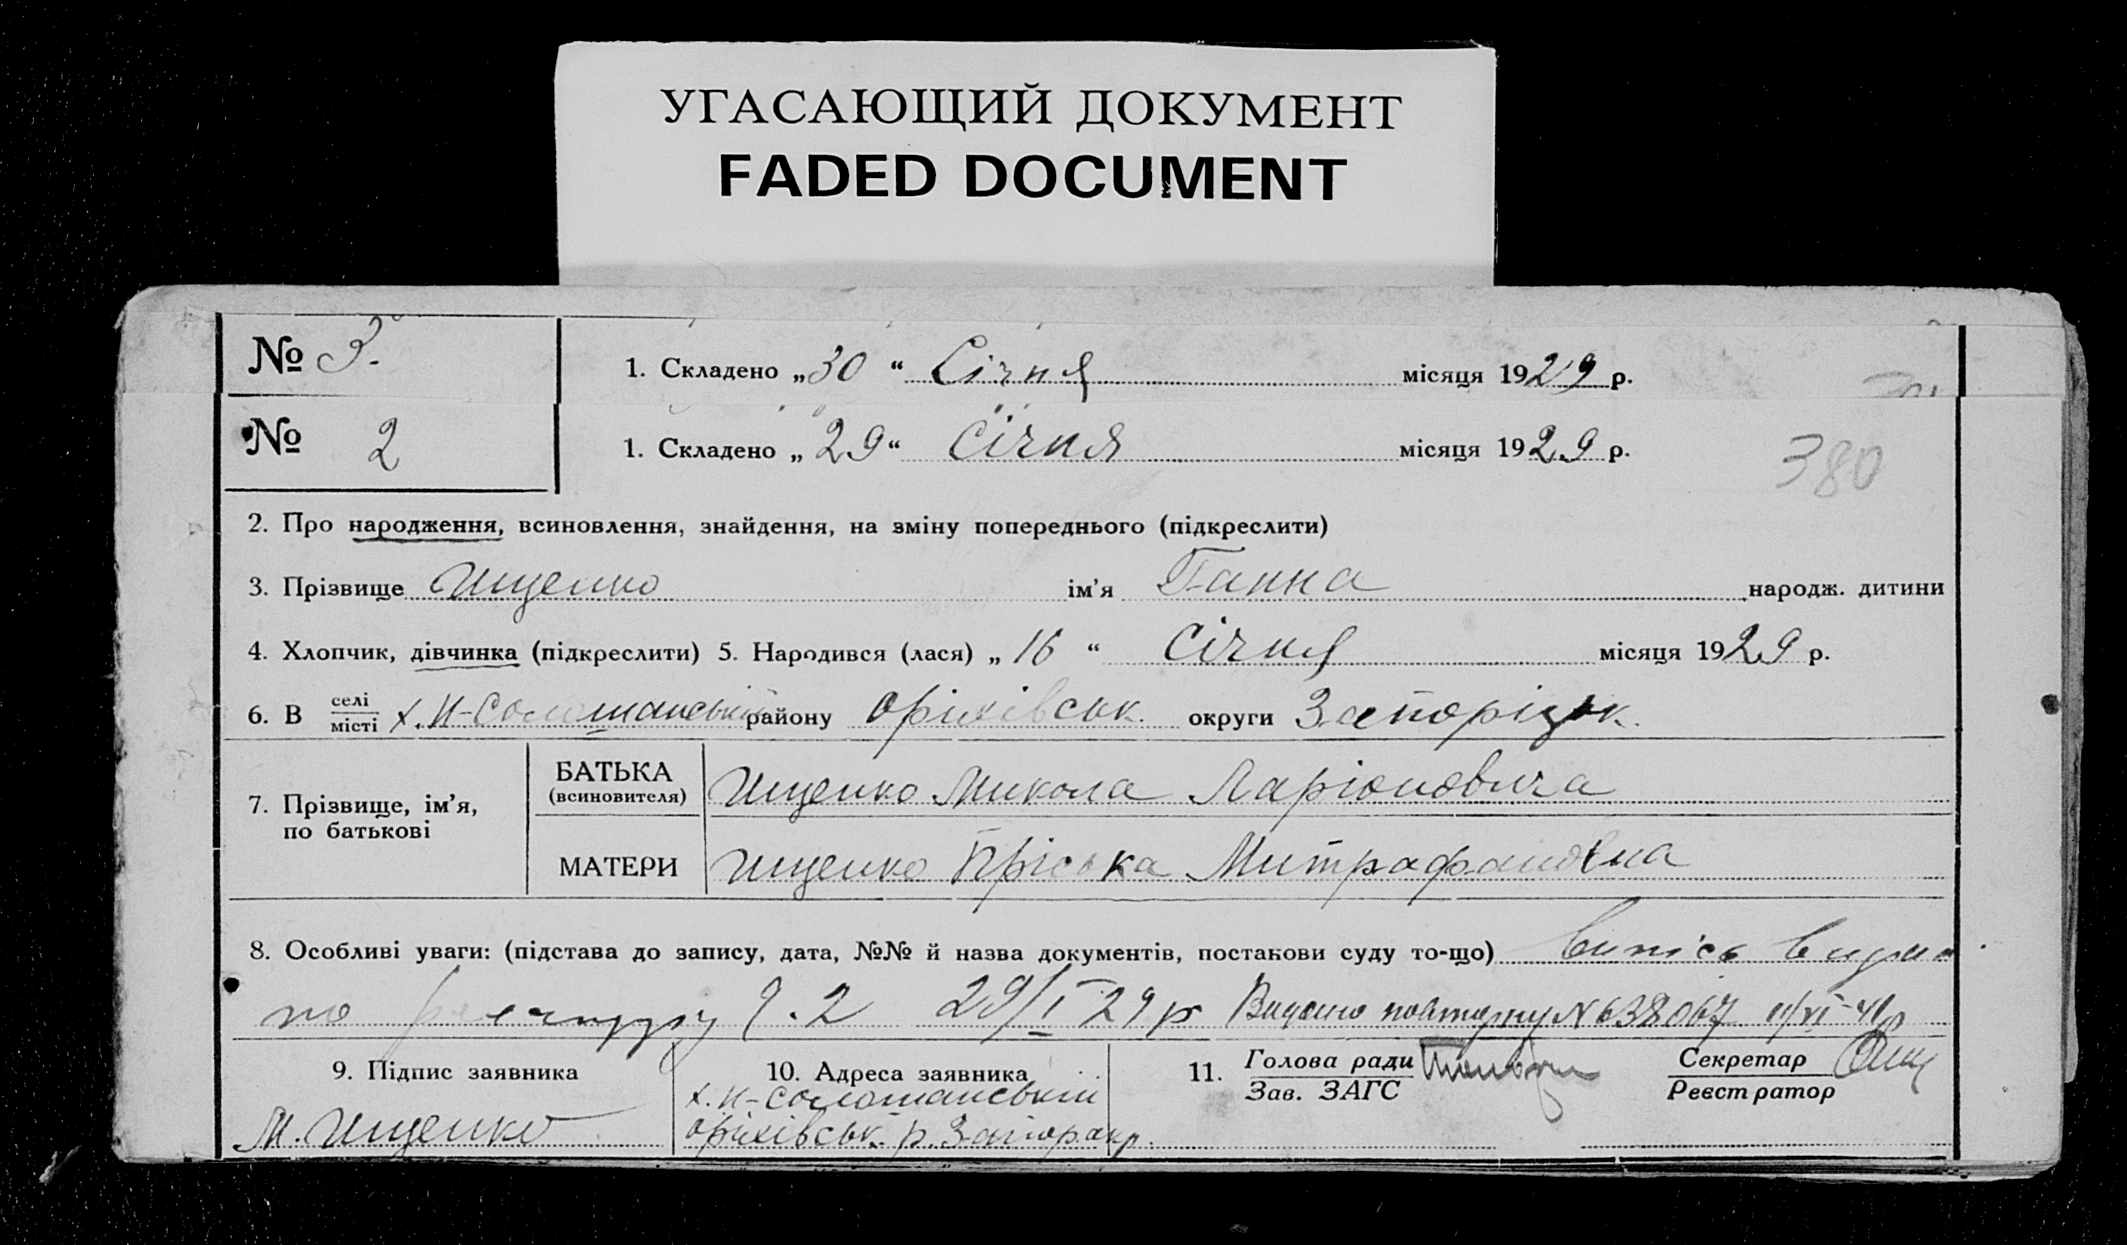 УГАСАЮЩИЙ ДОКУМЕНТ
FADED DOCUMENT
№ 3. 1. Складено „30“ Січня місяця 1929 р.
№ 2 1. Складено „29“ Січня місяця 1929 р.
380
2. Про народження, всиновлення, знайдення, на зміну попереднього (підкреслити)
3. Прізвище Ищенко ім'я Ганна народж. дитини
4. Хлопчик, дівчинка (підкреслити) 5. Народився (лася) „16“ Січня місяця 1929 р.
6. В селі/місті х. Н-Солошанський району Оріхівськ. округи Запоріжк.
7. Прізвище, ім'я, по батькові
БАТЬКА (всиновителя) Ищенко Микола Ларіоновича
МАТЕРИ Ищенко Пріська Митрафановна
8. Особливі уваги: (підстава до запису, дата, №№ й назва документів, постанови суду то-що) Випісь видана
по ч. 2 29/I 29 р Видано повторну № 638067 11/XI-41р
9. Підпис заявника 10. Адреса заявника 11. Голова ради Секретар
Зав. ЗАГС Реєстратор
х. Н-Солошанський
М. Ищенко Оріхівськ. р. Запор. окр.